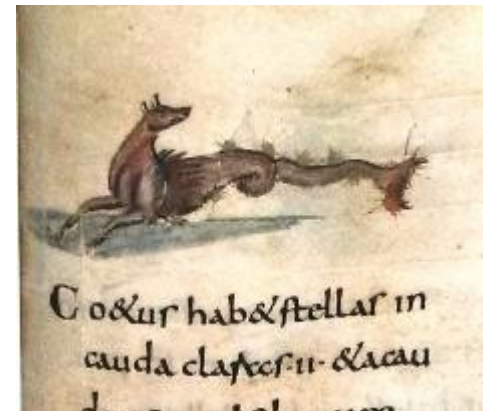 Co&uſ hab&ſtellaſ in
cauda ·ii· &acau